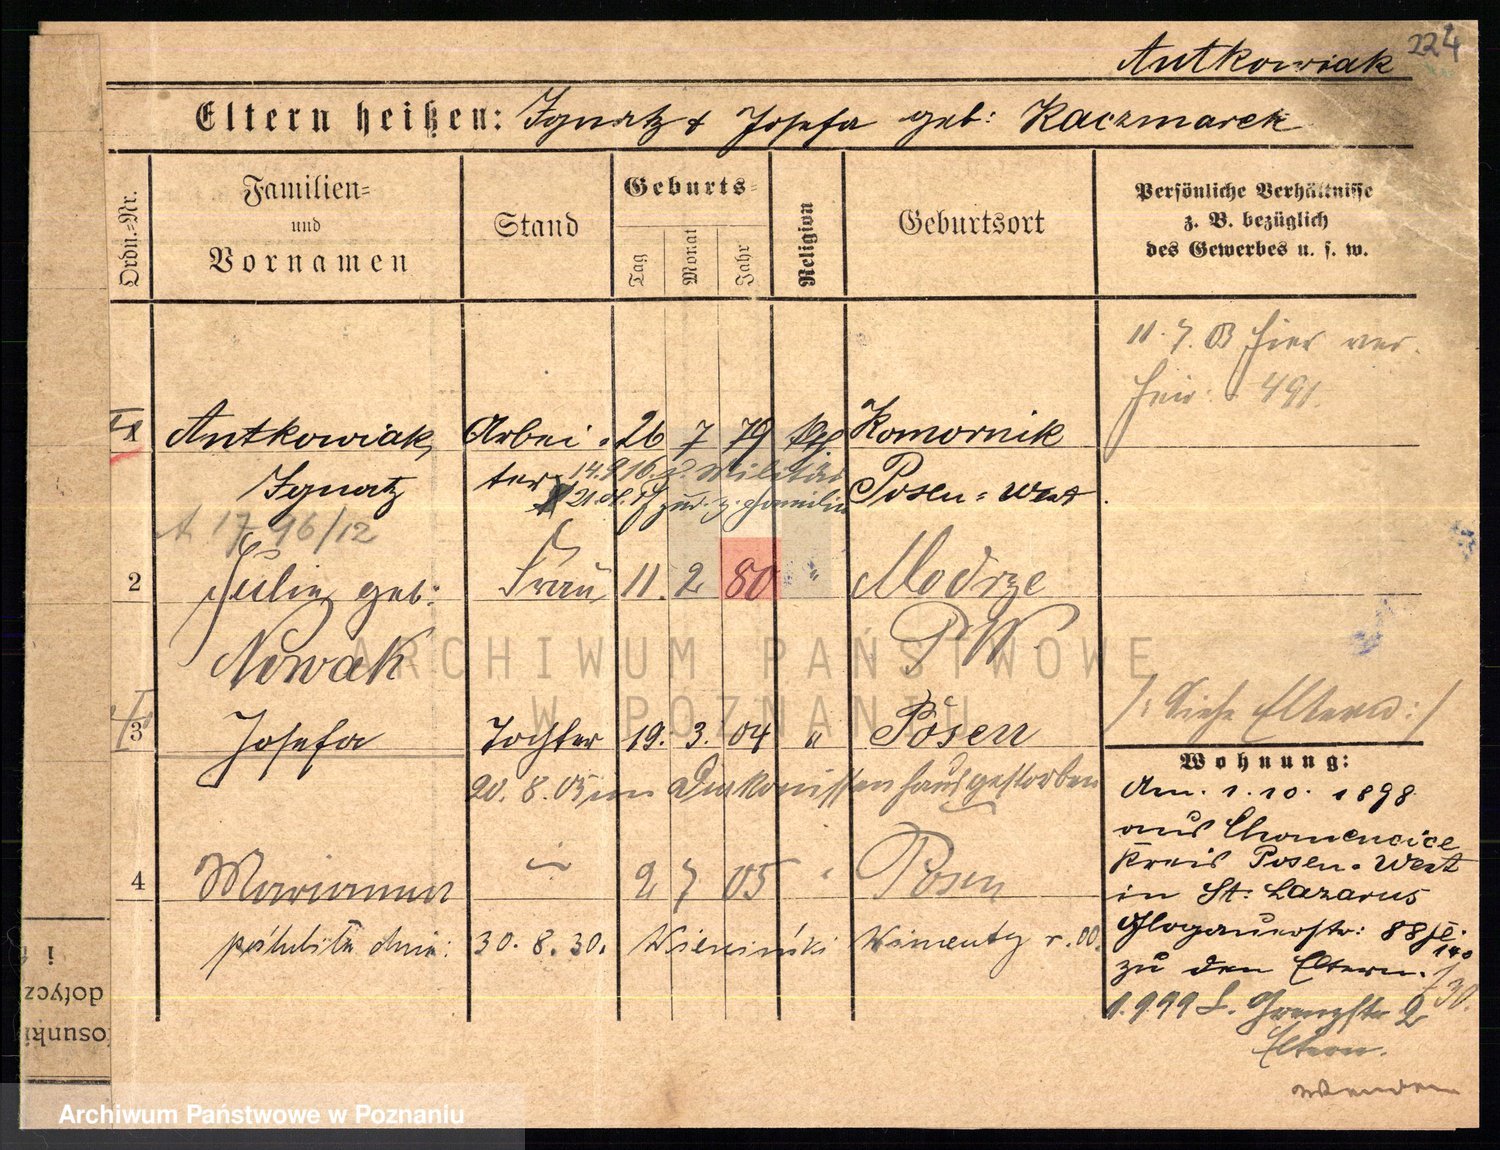 Antkowiak 224
Eltern heißen: Ignatz & Josefa geb: Kaczmarek
Ordn.=Nr.
Familien=
und
Vornamen
Stand
Geburts=
Tag
Monat
Jahr
Religion
Geburtsort
Persönliche Verhältnisse
z. B. bezüglich
des Gewerbes u. s. w.
11. 7. 03 hier ver.
heir: 491
1 Antkowiak, Arbei= 26 7 79 Komornik
Ignatz ter 14.9.16. z. Militär Posen=West.
z. Familie
A 17 96/12
2 Julie geb: Frau 11. 2 80 " Modrze
Nowak P W.
3 Josefa Tochter 19. 3. 04 " Posen
/: Siehe Eltern :/
20. 8. 05 im Diakonissenhaus gestorben
4 Marianna 2 7 05 " Posen
poślubiła dnia: 30. 8. 30. Wincenty r. 00.
Wohnung:
Am. 1. 10. 1898
aus Chomencice
Kreis Posen=West
in St: Lazarus
Glogauerstr: 88
zu den Eltern.
Eltern.
Wenden
i
dotycz
osunki
ARCHIWUM PAŃSTWOWE
W POZNANIU
Archiwum Państwowe w Poznaniu